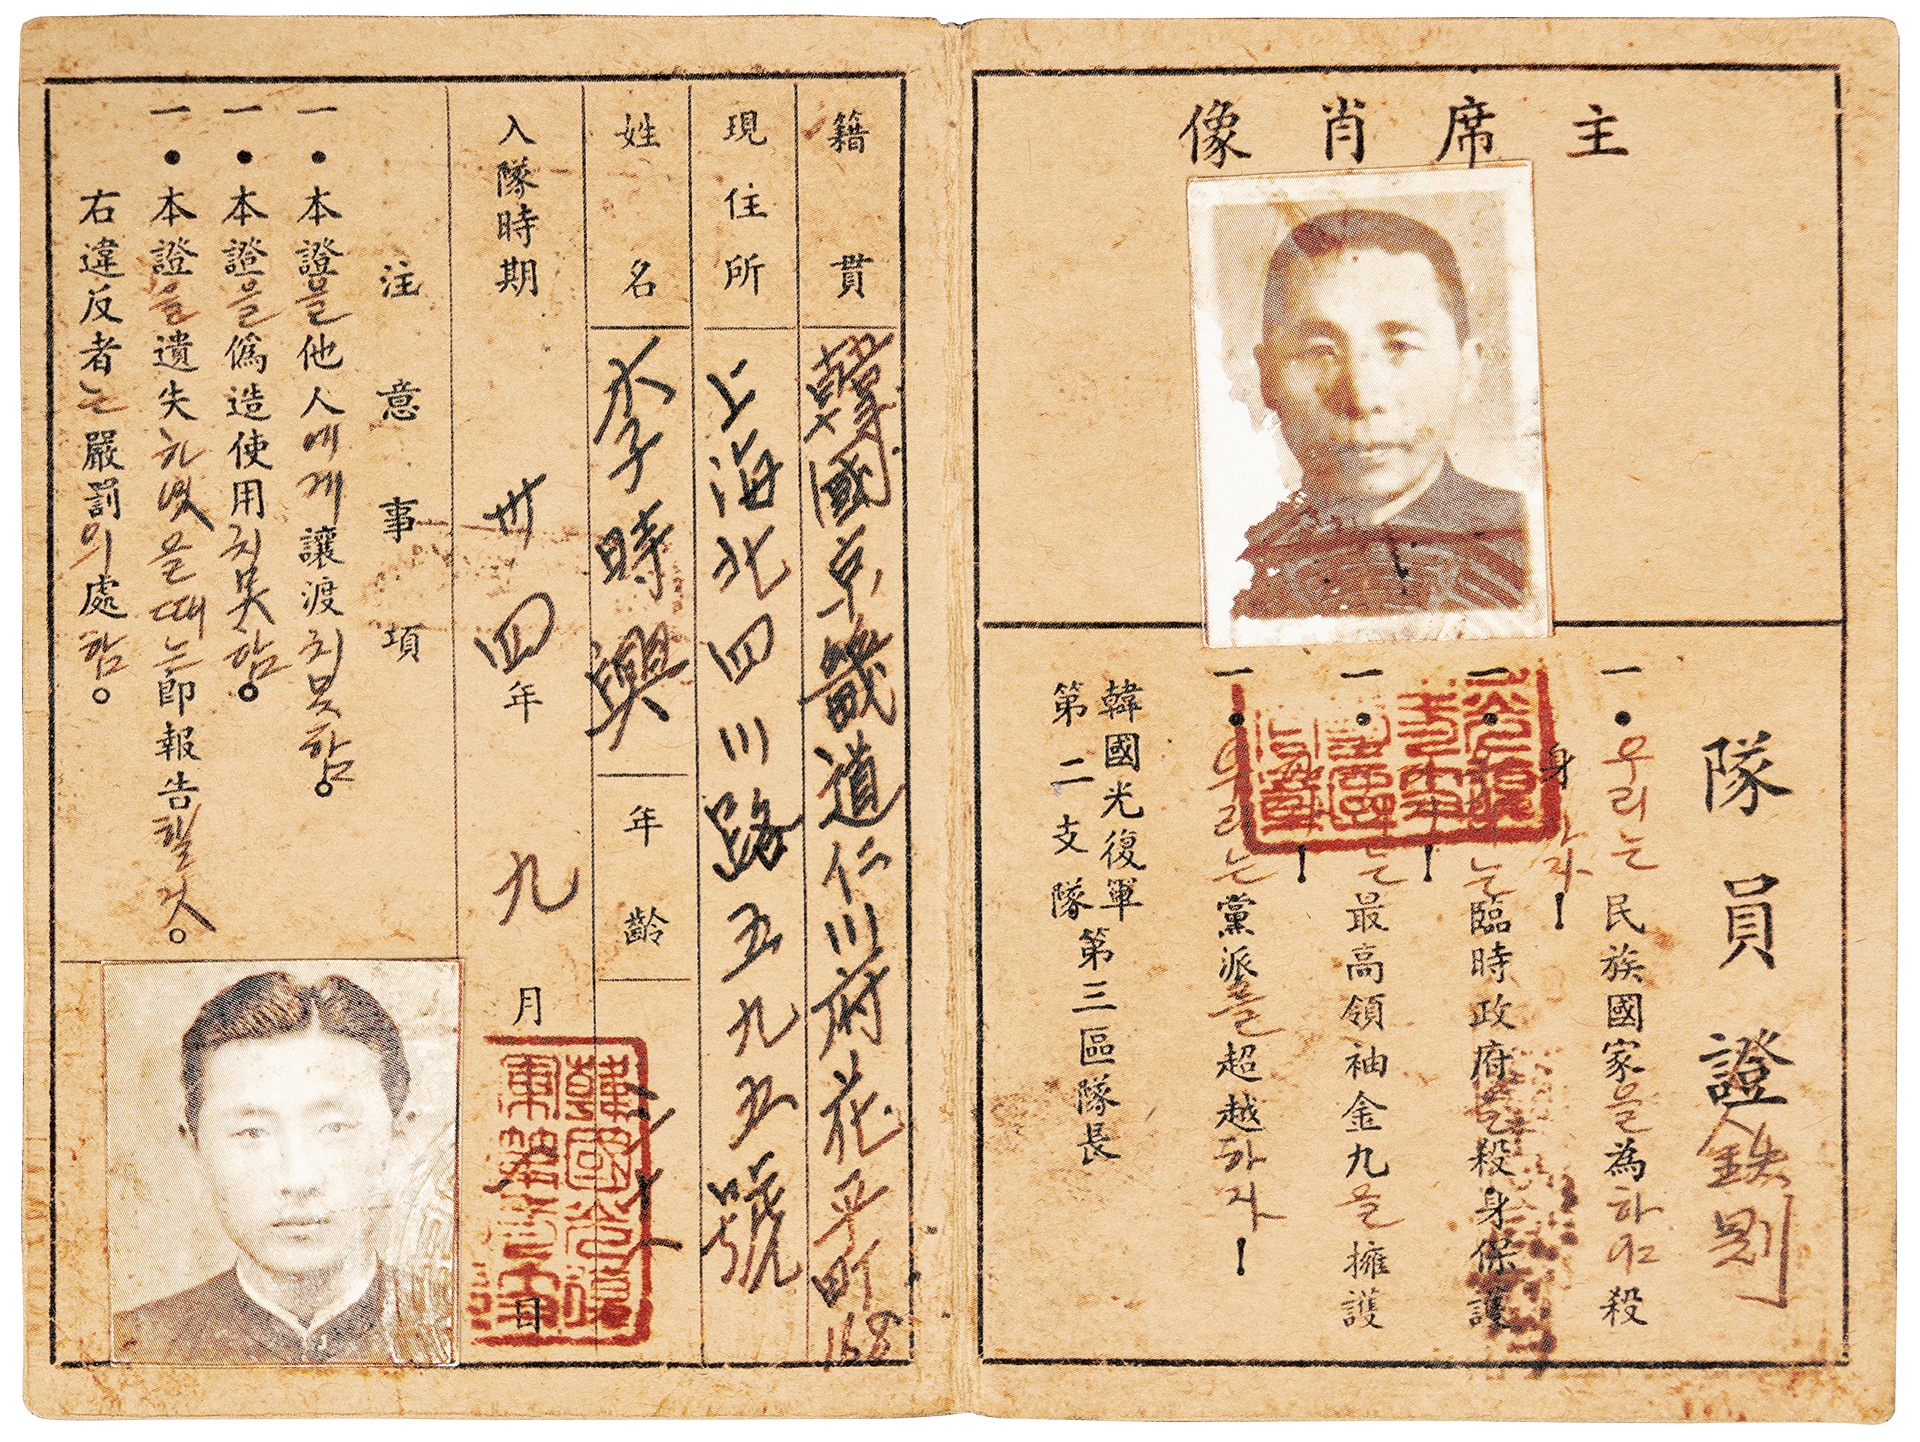 主席肖像
隊員證
鉄則
一・우리는民族國家을為하여殺
身하자!
一・우리는臨時政府을殺身保護
하자!
一・우리는最高領袖金九을擁護
하자!
一・우리는黨派을超越하자!
韓國光復軍
第二支隊第三區隊長
籍貫 韓國京畿道仁川府花平町168
現住所 上海北四川路五九五號
姓名 李時興 年齡
入隊時期 卅四年九月 日
注意事項
一・本證을他人에게讓渡치못함。
一・本證을僞造使用치못함。
一・本證을遺失하였을때는即報告할것。
右違反者는嚴罰의處함。